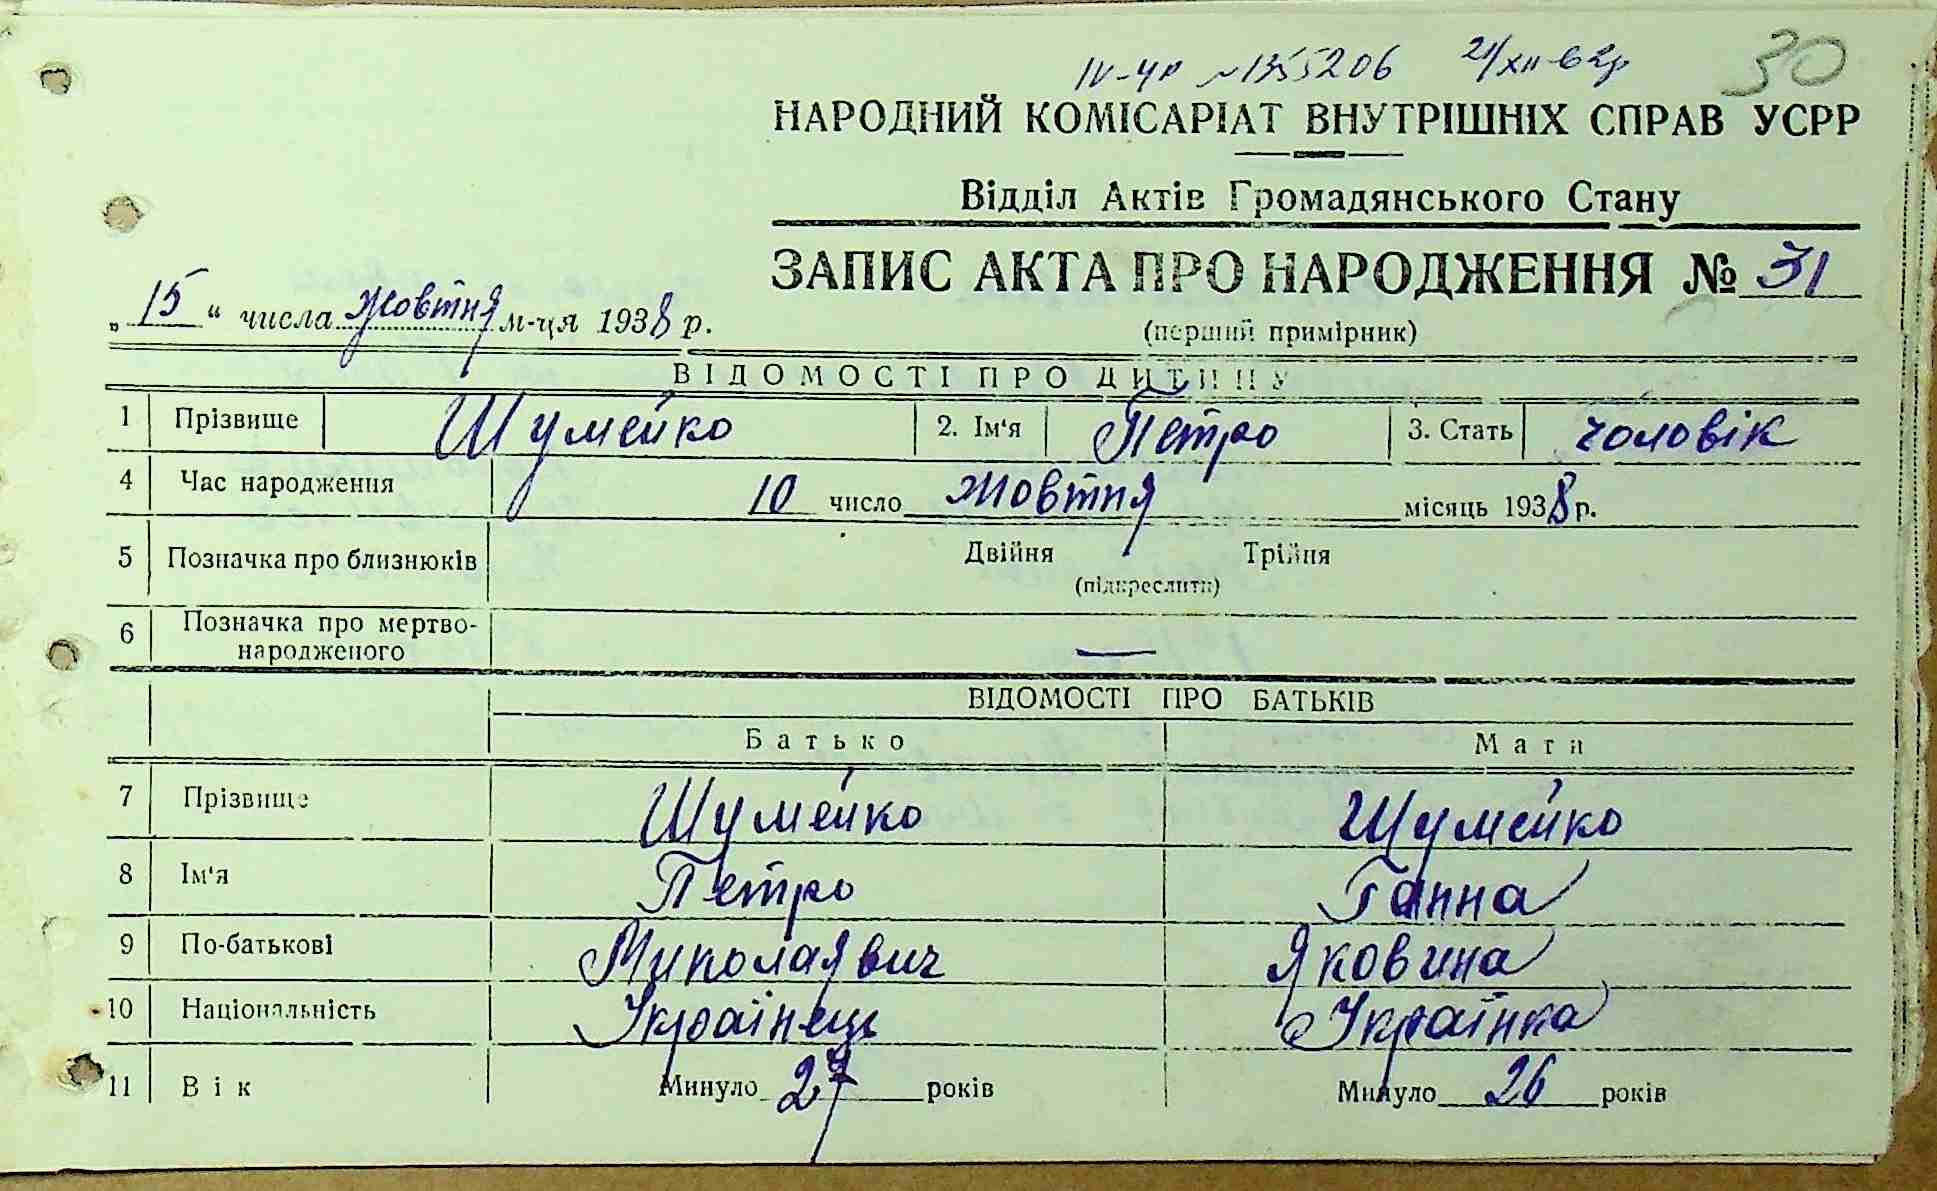 IV-УР №1355206 21/XII-62р 30
НАРОДНИЙ КОМІСАРІАТ ВНУТРІШНІХ СПРАВ УСРР
Відділ Актів Громадянського Стану
ЗАПИС АКТА ПРО НАРОДЖЕННЯ № 31
„15“ числа жовтня м-ця 1938 р.
(перший примірник)
ВІДОМОСТІ ПРО ДИТИНУ
1 Прізвище Шумейко 2. Ім'я Петро 3. Стать чоловік
4 Час народження 10 число жовтня місяць 1938 р.
5 Позначка про близнюків Двійня Трійня
(підкреслити)
6 Позначка про мертво-
народженого —
ВІДОМОСТІ ПРО БАТЬКІВ
Батько Мати
7 Прізвище Шумейко Шумейко
8 Ім'я Петро Ганна
9 По-батькові Миколаявич Яковина
10 Національність Українець Українка
11 Вік Минуло 27 років Минуло 26 років